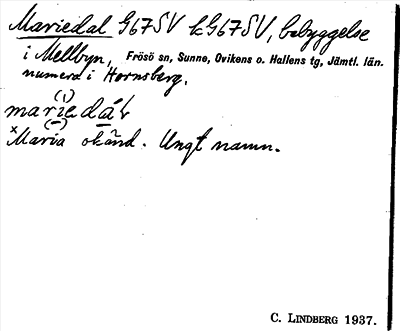 Mariedal G67SV kG67SV, bebyggelse
i Mellbyn, Frösö sn, Sunne, Ovikens o. Hallens tg, Jämtl. län.
numera i Hornsberg.
(i)
mariedáL
(–)
× Maria okänd. Ungt namn.
C. LINDBERG 1937.